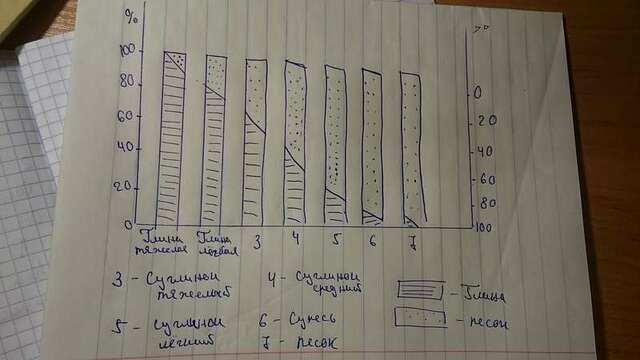 %
100
80
60
40
20
0
0
20
40
60
80
100
Глина тяжелая
Глина легкая
3
4
5
6
7
3 - Суглинок тяжелый
4 - Суглинок средний
5 - Суглинок легкий
6 - Супесь
7 - песок
- Глина
- песок